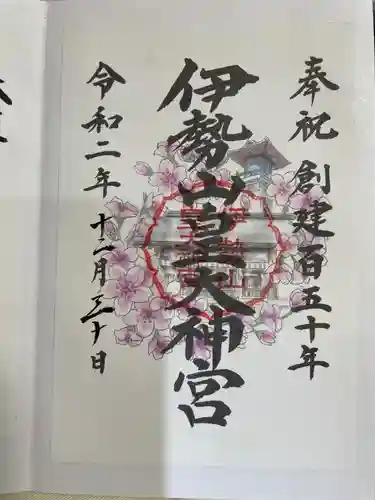 奉祝 創建百五十年
伊勢山皇大神宮
令和二年 十一月三十日